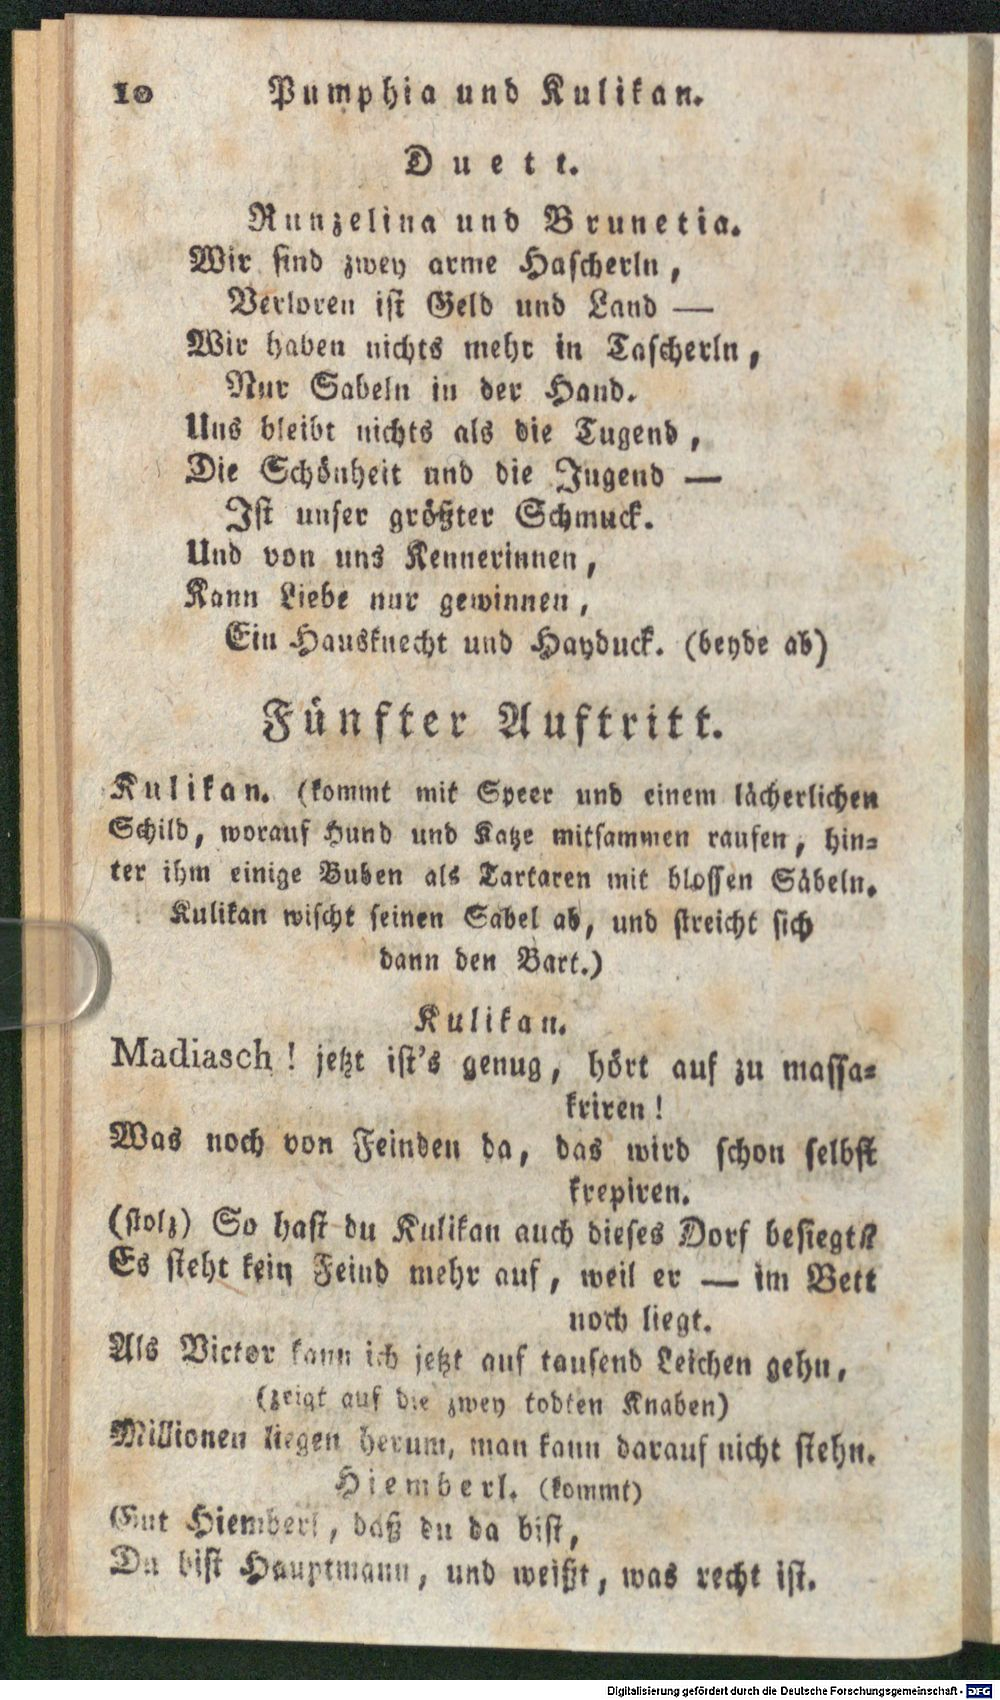 10 Pumphia und Kulikan.
Duett.
Runzelina und Brunetia.
Wir sind zwey arme Hascherln,
Verloren ist Geld und Land —
Wir haben nichts mehr in Tascherln,
Nur Sabeln in der Hand.
Uns bleibt nichts als die Tugend,
Die Schönheit und die Jugend —
Ist unser größter Schmuck.
Und von uns Kennerinnen,
Kann Liebe nur gewinnen,
Ein Hausknecht und Hayduck. (beyde ab)
Fünfter Auftritt.
Kulikan. (kommt mit Speer und einem lächerlichen
Schild, worauf Hund und Katze mitsammen raufen, hin-
ter ihm einige Buben als Tartaren mit blossen Säbeln.
Kulikan wischt seinen Sabel ab, und streicht sich
dann den Bart.)
Kulikan.
Madiasch! jetzt ist's genug, hört auf zu massa-
kriren!
Was noch von Feinden da, das wird schon selbst
krepiren.
(stolz) So hast du Kulikan auch dieses Dorf besiegt?
Es steht kein Feind mehr auf, weil er — im Bett
noch liegt.
Als Victor kann ich jetzt auf tausend Leichen gehn,
(zeigt auf die zwey todten Knaben)
Millionen liegen herum, man kann darauf nicht stehn.
Hiemberl. (kommt)
Gut Hiemberl, daß du da bist,
Du bist Hauptmann, und weißt, was recht ist.
Digitalisierung gefördert durch die Deutsche Forschungsgemeinschaft - DFG